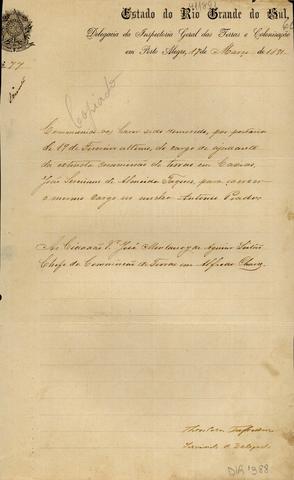 Estado do Rio Grande do Sul,
Delegacia da Inspectoria Geral das Terras e Colonisação
em Porto Alegre, 17 de Março de 1891.
Copiado
Communico vos haver sido removido, por portaria
de 19 de Fevereiro ultimo, do cargo de ajudante
da extincta commissão de terras em Caxias,
João de Almeida para exercer
o mesmo cargo no nucleo Antonio Prado.
Ao Cidadão José Montaury de Aguiar Leitão
Chefe da Commissão de Terras em Alfredo Chaves
Servindo de Delegado
DIR 1388